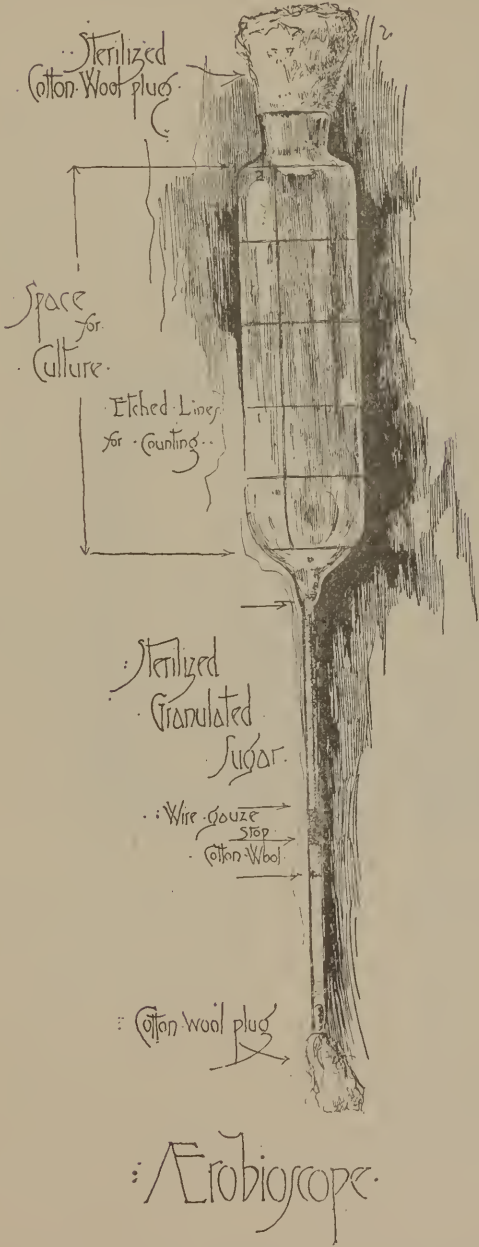 Sterilized
Cotton Wool plug
Space
for
Culture
Etched Lines
for Counting
Sterilized
Granulated
Sugar
Wire gauze
Stop
Cotton Wool
Cotton wool plug
Ærobioscope